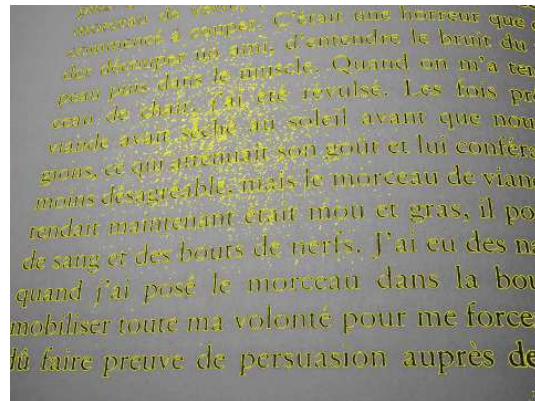 morceau de verre,
commencé à couper. C'était une horreur que
der découper un ami, d'entendre le bruit du
peau puis dans le muscle. Quand on m'a ten
ceau de chair, j'ai été révulsé. Les fois pré
viande avait séché au soleil avant que nou
gions, ce qui atténuait son goût et lui conféra
moins désagréable, mais le morceau de vian
tendait maintenant était mou et gras, il po
de sang et des bouts de nerfs. J'ai eu des na
quand j'ai posé le morceau dans la bou
mobiliser toute ma volonté pour me force
dû faire preuve de persuasion auprès de